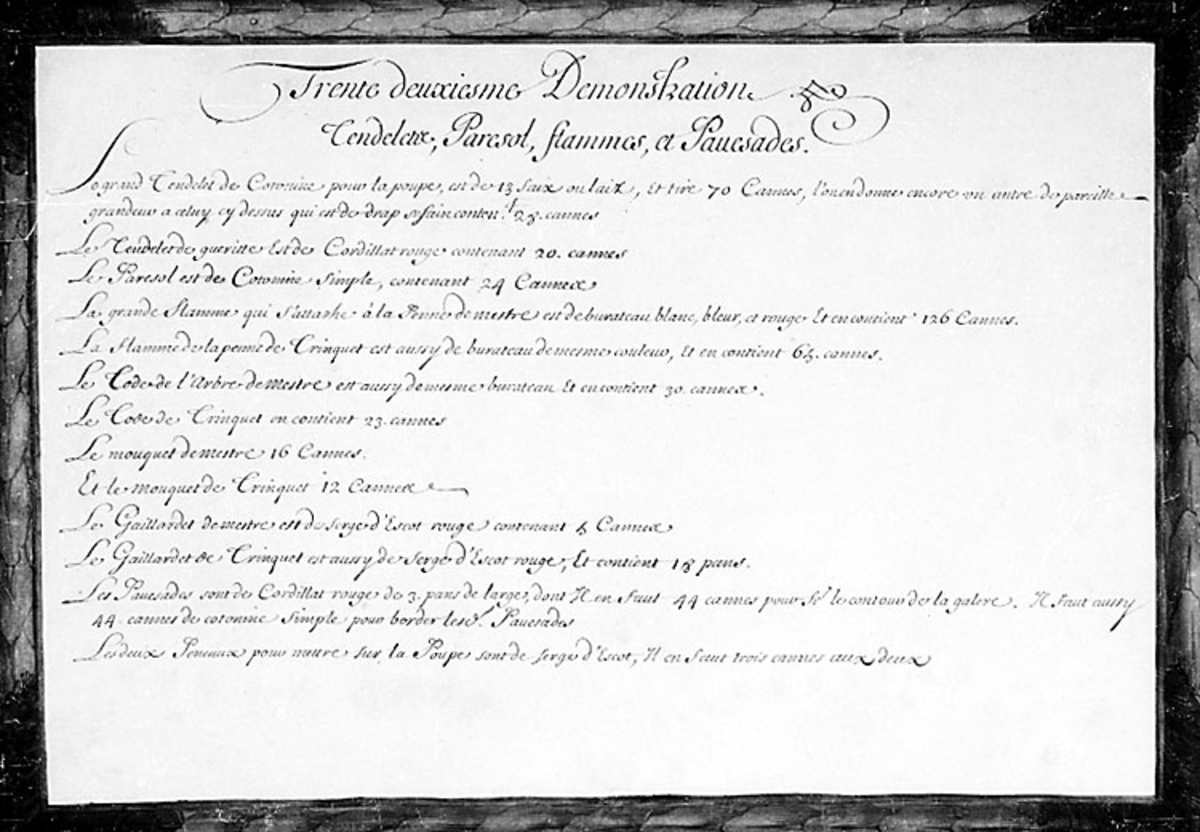 Trente deuxiesme Demonstration
Tendelets, Paresol, flammes, et Pauesades.
Le grand Tendelet de Cotonine pour la poupe, est de 13 faix ou laix, Et tire 70 Cannes, l'on en donne encore vn autre de pareille
grandeur a celuy cy dessus qui est de drap content. 28. cannes
Le Tendelet de gueritte Est de Cordillat rouge contenant 20. cannes
Le Paresol est de Cotonine Simple, contenant 24 Cannes
La grande flamme qui s'attache à la Penne de mestre est de burateau blanc, bleur, et rouge Et en contient 126 Cannes.
La flamme de la penne de Trinquet est aussy de burateau de mesme couleur, Et en contient 65. cannes.
Le Code de l'Arbre de mestre est aussy de mesme burateau Et en contient 30. cannes.
Le Code de Trinquet en contient 23. cannes
Le mouquet de mestre 16 Cannes.
Et le mouquet de Trinquet 12 Cannes
Le Gaillardet de mestre est de serge d'Escot rouge contenant 5 Cannes
Le Gaillardet de Trinquet est aussy de serge d'Escot rouge, Et contient 18 pans.
Les Pauesades sont de Cordillat rouge de 3. pans de large, dont Il en faut 44 cannes pour le contour de la galere. Il faut aussy
44. cannes de cotonine Simple pour border lesd. Pauesades
Les deux Peneaux pour mettre sur la Poupe sont de serge d'Escot, Il en faut trois cannes aux deux